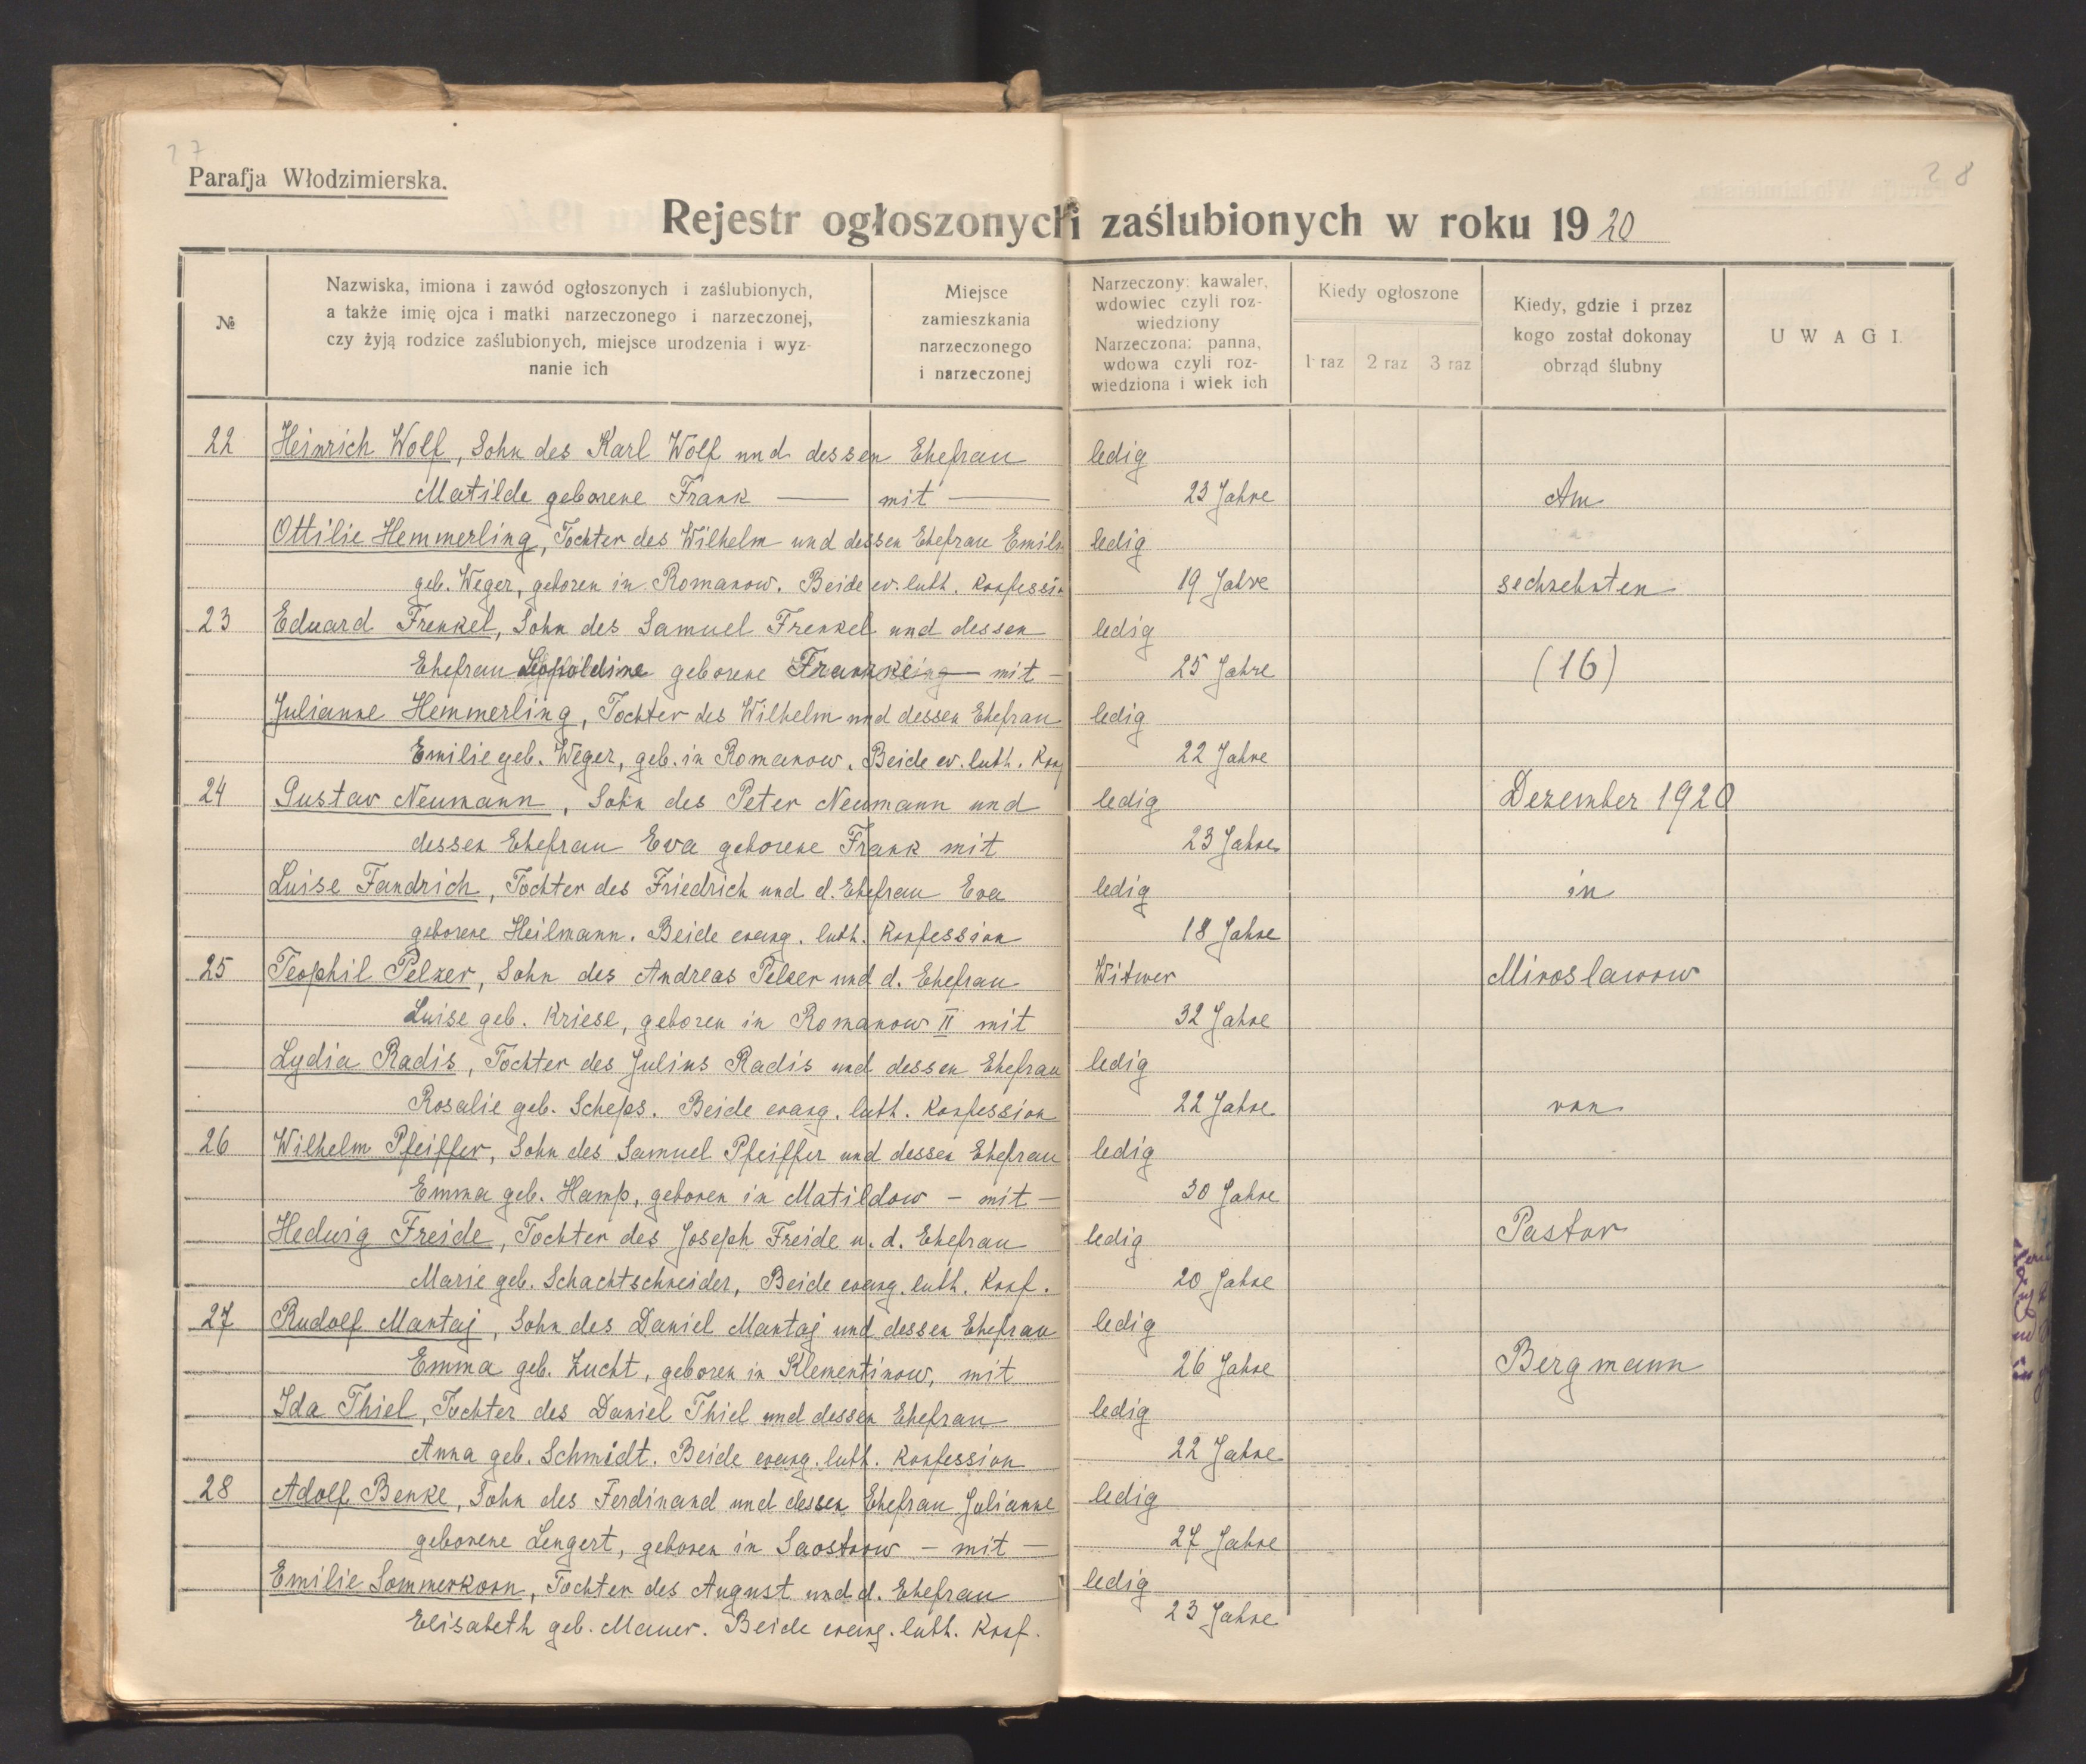 27
28
Parafja Włodzimierska.
Rejestr ogłoszonych i zaślubionych w roku 1920
№
Nazwiska, imiona i zawód ogłoszonych i zaślubionych,
a także imię ojca i matki narzeczonego i narzeczonej,
czy żyją rodzice zaślubionych, miejsce urodzenia i wyz-
nanie ich
Miejsce
zamieszkania
narzeczonego
i narzeczonej
Narzeczony: kawaler,
wdowiec czyli roz-
wiedziony
Narzeczona: panna,
wdowa czyli roz-
wiedziona i wiek ich
Kiedy ogłoszone
1 raz 2 raz 3 raz
Kiedy, gdzie i przez
kogo został dokonay
obrząd ślubny
UWAGI.
22 Heinrich Wolf, Sohn des Karl Wolf und dessen Ehefrau ledig
Matilde geborene Frank — mit — 23 Jahre Am
Ottilie Hemmerling, Tochter des Wilhelm und dessen Ehefrau Emilie ledig
geb. Weger, geboren in Romanow. Beide ev. luth. Konfessio 19 Jahre sechzehnten
23 Eduard Frenkel, Sohn des Samuel Frenkel und dessen ledig
Ehefrau Leopoldine geborene Frank — mit — 25 Jahre (16)
Julianne Hemmerling, Tochter des Wilhelm und dessen Ehefrau ledig
Emilie geb. Weger, geb. in Romanow. Beide ev. luth. Konf 22 Jahre
24 Gustav Neumann, Sohn des Peter Neumann und ledig Dezember 1920
dessen Ehefrau Eva geborene Frank mit 23 Jahre
Luise Fandrich, Tochter des Friedrich und d. Ehefrau Eva ledig in
geborene Heilmann. Beide evang. luth. Konfession 18 Jahre
25 Teophil Pelzer, Sohn des Andreas Pelzer und d. Ehefrau Witwer Miroslawow
Luise geb. Kriese, geboren in Romanow II mit 32 Jahre
Lydia Radis, Tochter des Julius Radis und dessen Ehefrau ledig
Rosalie geb. Scheps. Beide evang. luth. Konfession 22 Jahre von
26 Wilhelm Pfeiffer, Sohn des Samuel Pfeiffer und dessen Ehefrau ledig
Emma geb. Hamp, geboren in Matildow — mit — 30 Jahre
Hedwig Freide, Tochter des Joseph Freide u. d. Ehefrau ledig Pastor
Marie geb. Schachtschneider, Beide evang. luth. Konf. 20 Jahre
27 Rudolf Mantaj, Sohn des Daniel Mantaj und dessen Ehefrau ledig
Emma geb. Zucht, geboren in Klementinow, mit 26 Jahre Bergmann
Ida Thiel, Tochter des Daniel Thiel und dessen Ehefrau ledig
Anna geb. Schmidt. Beide evang. luth. Konfession 22 Jahre
28 Adolf Benke, Sohn des Ferdinand und dessen Ehefrau Julianne ledig
geborene Lengert, geboren in Saostrow — mit — 27 Jahre
Emilie Sommerkorn, Tochter des August und d. Ehefrau ledig
Elisabeth geb. Mauer. Beide evang. luth. Konf. 23 Jahre